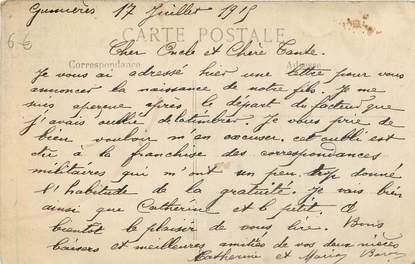 17 Juillet 1915
CARTE POSTALE
66
Cher Oncle et Chère Tante.
Correspondance Adresse
Je vous ai adressé hier une lettre pour vous
annoncer la naissance de notre fils. Je me
suis aperçue après le départ du facteur que
j'avais oublié de la timbrer. Je vous prie de
bien vouloir m'en excuser. cet oubli est
dû à la franchise des correspondances
militaires qui m'ont un peu trop donné
l'habitude de la gratuité. Je vais bien
ainsi que Catherine et le petit. A
bientôt le plaisir de vous lire. Bons
baisers et meilleures amitiés de vos deux nièces
Catherine et Maria